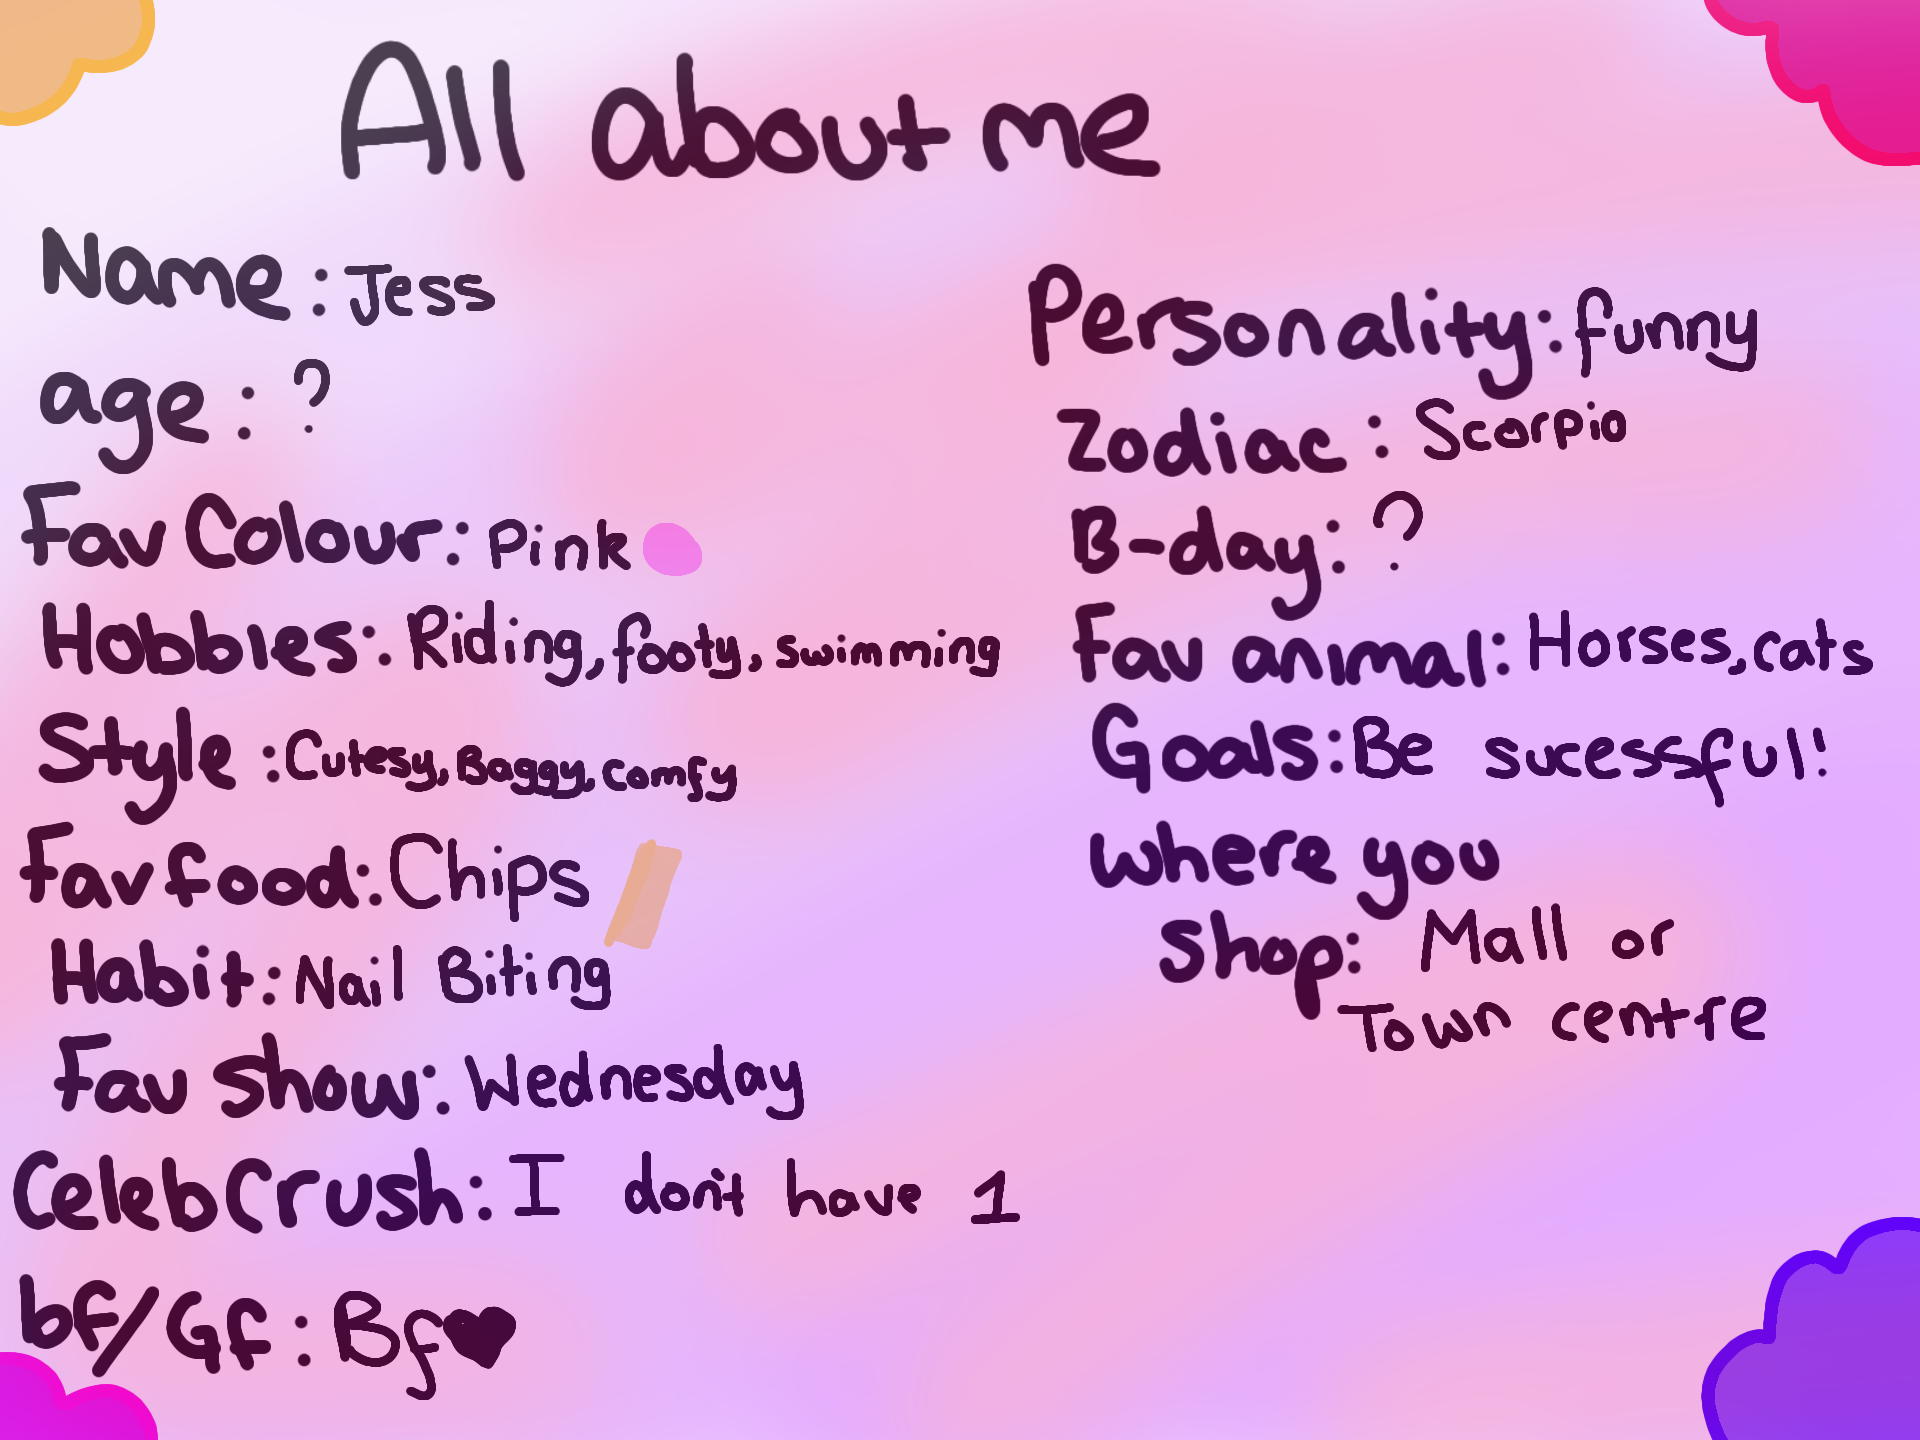 All about me
Name : Jess
age : ?
Fav Colour : Pink
Hobbies : Riding, footy, swimming
Style : Cutesy, Baggy, comfy
Fav food : Chips
Habit : Nail Biting
Fav show : Wednesday
Celeb Crush : I don't have 1
bf/Gf : Bf♥
Personality : funny
Zodiac : Scorpio
B-day : ?
Fav animal : Horses, cats
Goals : Be sucessful!
where you
shop : Mall or
Town centre